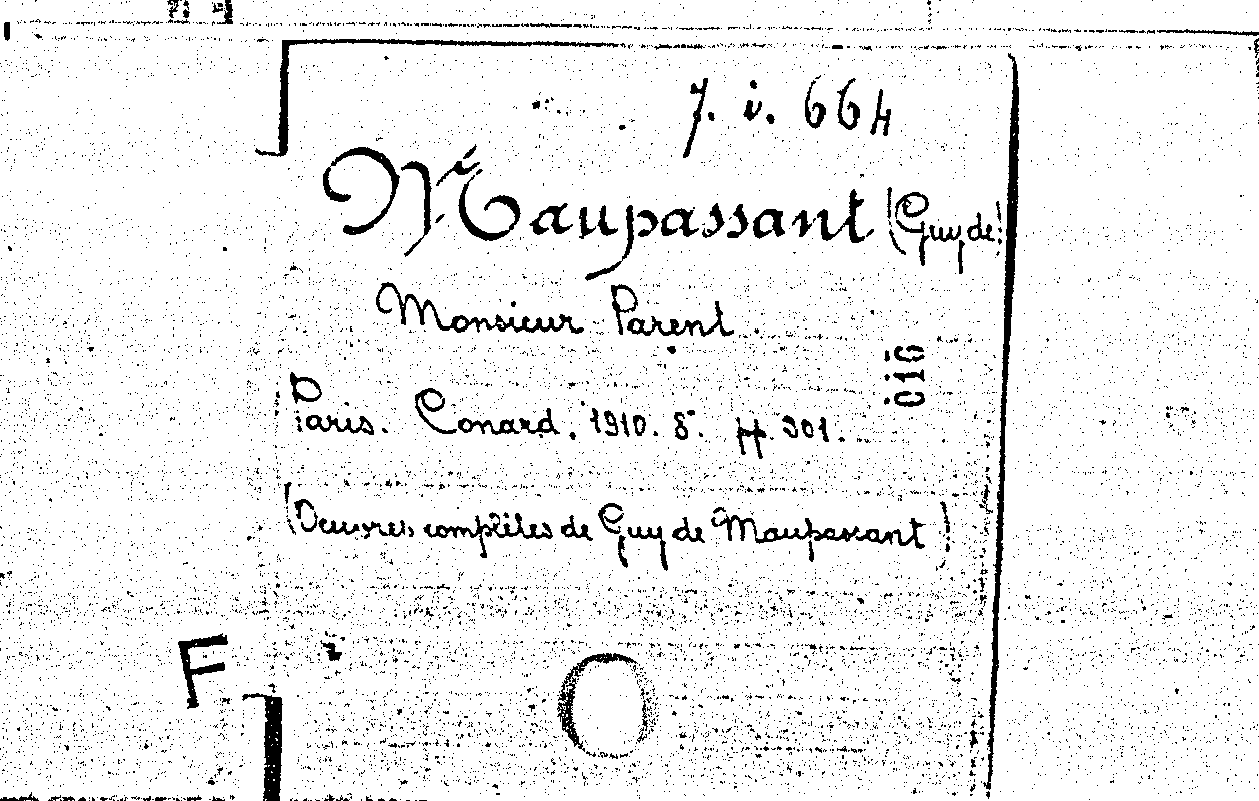 7. i. 664
Maupassant (Guy de)
Monsieur Parent.
016
Paris. Conard, 1910. 8°. pp. 301.
(Oeuvres complètes de Guy de Maupassant)
F